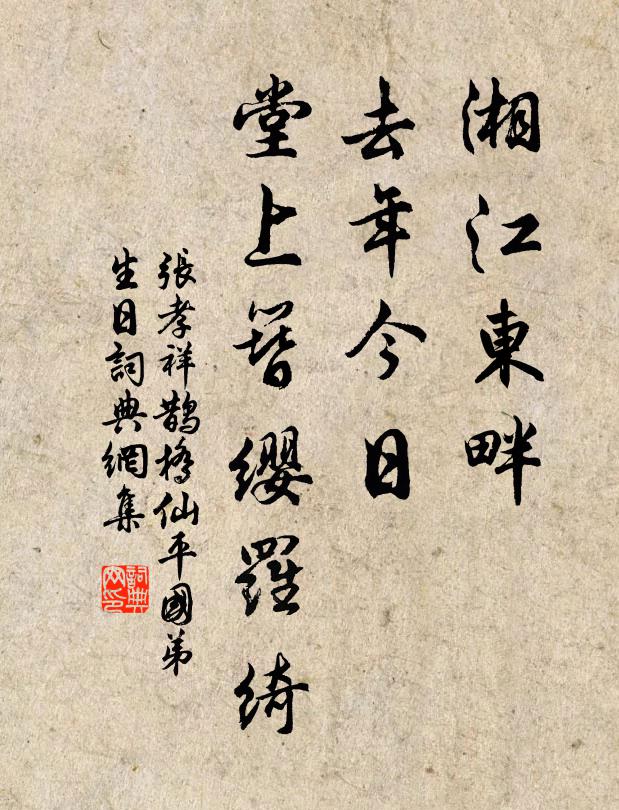 湘江東畔
去年今日
堂上簪纓羅綺
張孝祥鵲橋仙平國弟
生日詞典網集
詞典
网印